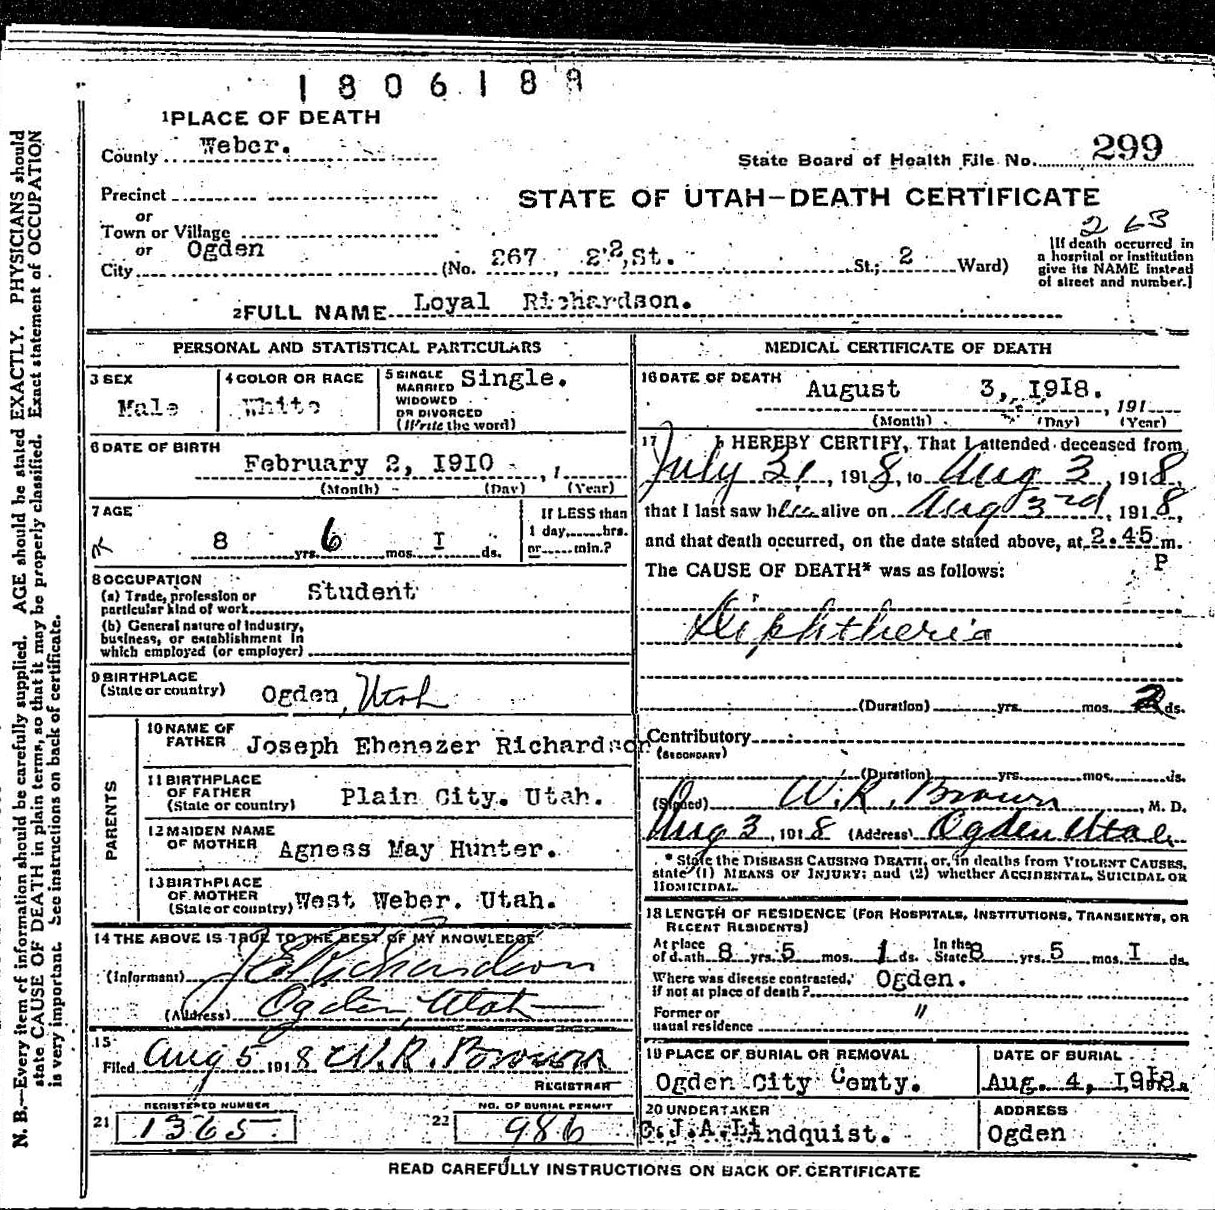 1806188
1 PLACE OF DEATH
County Weber.
State Board of Health File No. 299
Precinct
STATE OF UTAH—DEATH CERTIFICATE
or
Town or Village
263
or
City Ogden (No. 267, 2'2,St. St.; 2 Ward)
[If death occurred in
a hospital or institution
give its NAME instead
of street and number.]
2 FULL NAME Loyal Richardson.
PERSONAL AND STATISTICAL PARTICULARS
3 SEX Male
4 COLOR OR RACE White
5 SINGLE
MARRIED
WIDOWED
OR DIVORCED
(Write the word) Single.
6 DATE OF BIRTH
February 2, 1910 , 1
(Month) (Day) (Year)
7 AGE
8 yrs. 6 mos. I ds.
If LESS than
1 day, hrs.
or min.?
8 OCCUPATION
(a) Trade, profession or
particular kind of work Student
(b) General nature of industry,
business, or establishment in
which employed (or employer)
9 BIRTHPLACE
(State or country) Ogden, Utah
PARENTS
10 NAME OF
FATHER Joseph Ebenezer Richardson
11 BIRTHPLACE
OF FATHER
(State or country) Plain City. Utah.
12 MAIDEN NAME
OF MOTHER Agness May Hunter.
13 BIRTHPLACE
OF MOTHER
(State or country) West Weber. Utah.
14 THE ABOVE IS TRUE TO THE BEST OF MY KNOWLEDGE
(Informant) J E Richardson
(Address) Ogden, Utah
15
Filed Aug 5 1918 W. R. Brown
REGISTRAR
21 REGISTERED NUMBER
1365
22 NO. OF BURIAL PERMIT
986
MEDICAL CERTIFICATE OF DEATH
16 DATE OF DEATH August 3, 1918.
, 191
(Month) (Day) (Year)
17 I HEREBY CERTIFY, That I attended deceased from
July 31, 1918, to Aug 3, 1918,
that I last saw him alive on Aug 3rd, 1918,
and that death occurred, on the date stated above, at 2.45 m.
P
The CAUSE OF DEATH* was as follows:
Diphtheria
(Duration) yrs. mos. 2 ds.
Contributory
(SECONDARY)
(Duration) yrs. mos. ds.
(Signed) W. R. Brown, M. D.
Aug 3, 1918 (Address) Ogden Utah
* State the DISEASE CAUSING DEATH, or, in deaths from VIOLENT CAUSES,
state (1) MEANS OF INJURY; and (2) whether ACCIDENTAL, SUICIDAL OR
HOMICIDAL.
18 LENGTH OF RESIDENCE (FOR HOSPITALS, INSTITUTIONS, TRANSIENTS, OR
RECENT RESIDENTS)
At place
of death 8 yrs. 5 mos. 1 ds. In the
State 8 yrs. 5 mos. I ds.
Where was disease contracted,
if not at place of death? Ogden.
Former or
usual residence "
19 PLACE OF BURIAL OR REMOVAL
Ogden City Cemty.
DATE OF BURIAL
Aug. 4, 1918.
20 UNDERTAKER
C.J.A. Lindquist.
ADDRESS
Ogden
READ CAREFULLY INSTRUCTIONS ON BACK OF CERTIFICATE
N. B.—Every item of information should be carefully supplied. AGE should be stated EXACTLY. PHYSICIANS should
state CAUSE OF DEATH in plain terms, so that it may be properly classified. Exact statement of OCCUPATION
is very important. See instructions on back of certificate.